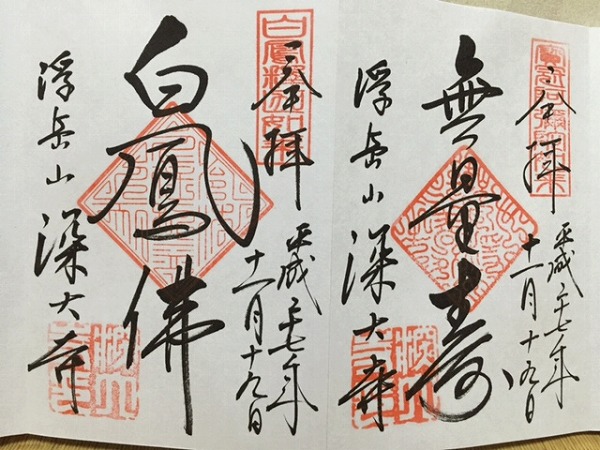 奉拝
無量寿
平成二十七年
十一月十九日
浮岳山 深大寺
奉拝
白鳳佛
平成二十七年
十一月十九日
浮岳山 深大寺